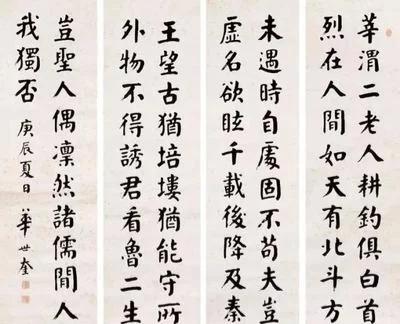 莘渭二老人耕釣俱白首
烈在人間如天有北斗方
未遇時自處固不苟夫豈
虛名欲眩千載後降及秦
王望古猶培塿猶能守所
外物不得誘君看魯二生
豈聖人偶凜然諸儒間人
我獨否 庚辰夏日 華世奎